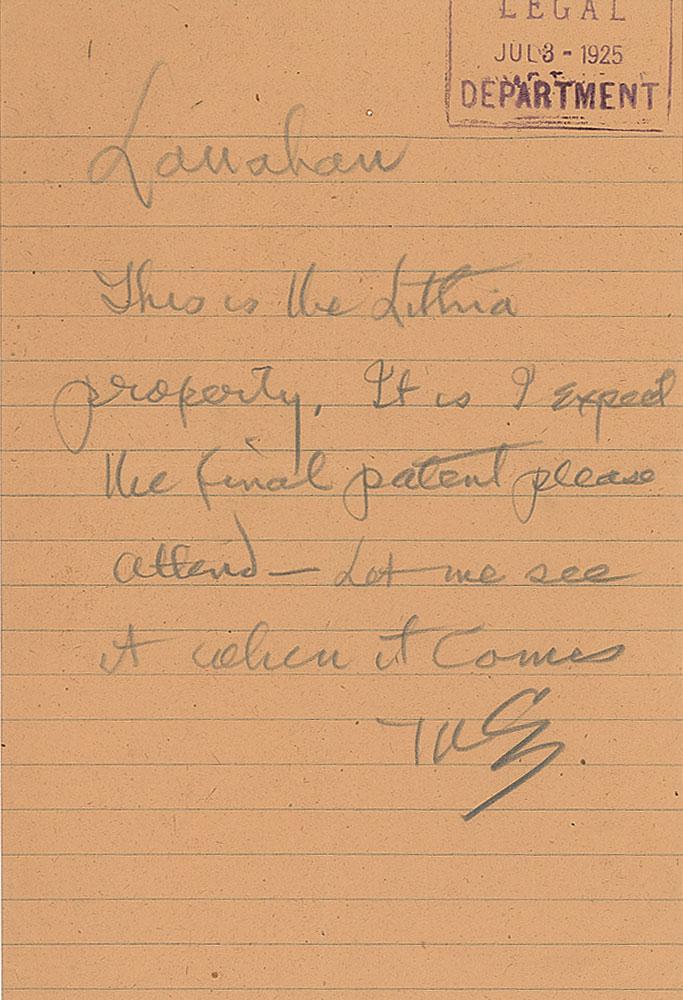 LEGAL
JUL 3 - 1925
DEPARTMENT
Lanahan
This is the Lithia
property, It is I expect
the final patent please
attend — Let me see
it when it comes
TAE.